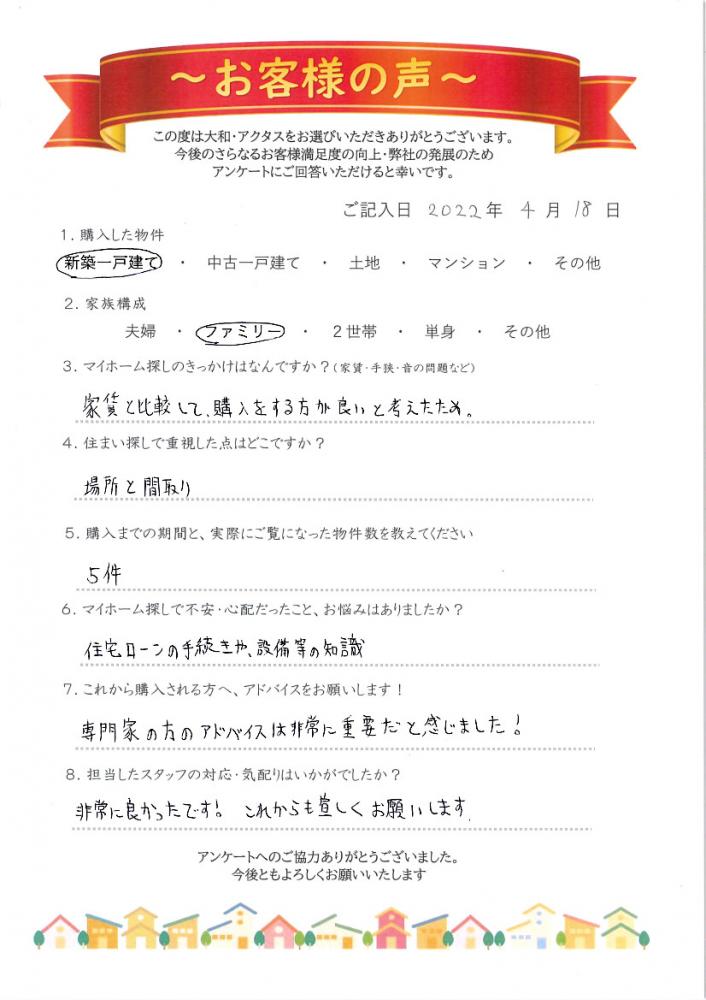 ～お客様の声～
この度は大和・アクタスをお選びいただきありがとうございます。
今後のさらなるお客様満足度の向上・弊社の発展のため
アンケートにご回答いただけると幸いです。
ご記入日 2022年 4月 18日
1. 購入した物件
新築一戸建て ・ 中古一戸建て ・ 土地 ・ マンション ・ その他
2. 家族構成
夫婦 ・ ファミリー ・ 2世帯 ・ 単身 ・ その他
3. マイホーム探しのきっかけはなんですか？(家賃・手狭・音の問題など)
家賃と比較して、購入をする方が良いと考えたため。
4. 住まい探しで重視した点はどこですか？
場所と間取り
5. 購入までの期間と、実際にご覧になった物件数を教えてください
5件
6. マイホーム探しで不安・心配だったこと、お悩みはありましたか？
住宅ローンの手続きや、設備等の知識
7. これから購入される方へ、アドバイスをお願いします！
専門家の方のアドバイスは非常に重要だと感じました！
8. 担当したスタッフの対応・気配りはいかがでしたか？
非常に良かったです！ これからも宜しくお願いします。
アンケートへのご協力ありがとうございました。
今後ともよろしくお願いいたします